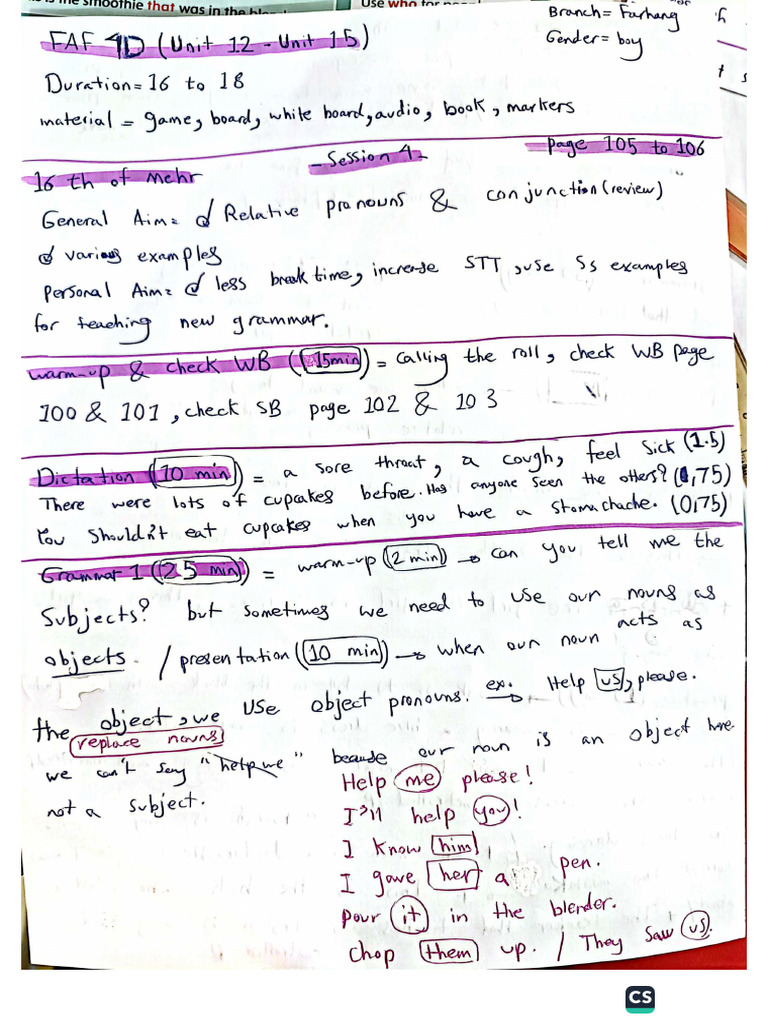 the smoothie that was in the
Use who for
Branch = Farhang
Gender = boy
FAF 4D (Unit 12 - Unit 15)
Duration = 16 to 18
material = game, board, white board, audio, book, markers
16 th of Mehr - Session 4 - page 105 to 106
General Aim = Relative pronouns & conjunction (review)
various examples
Personal Aim = less break time, increase STT, use Ss examples
for teaching new grammar.
warm-up & check WB (15min) = Calling the roll, check WB page
100 & 101, check SB page 102 & 103
Dictation (10 min) = a sore throat, a cough, feel sick (1.5)
There were lots of cupcakes before. Has anyone seen the others? (0,75)
You shouldn't eat cupcakes when you have a stomachache. (0,75)
Grammar 1 (25 min) = warm-up (2 min) → can you tell me the
subjects? but sometimes we need to use our nouns as
objects. / presentation (10 min) → when our noun acts as
the object, we use object pronouns. ex. → Help us, please.
replace nouns
we can't say "help we" because our noun is an object here
not a subject.
Help me please!
I'll help you!
I know him
I gave her a pen.
Pour it in the blender.
Chop them up. / They saw us.
CS